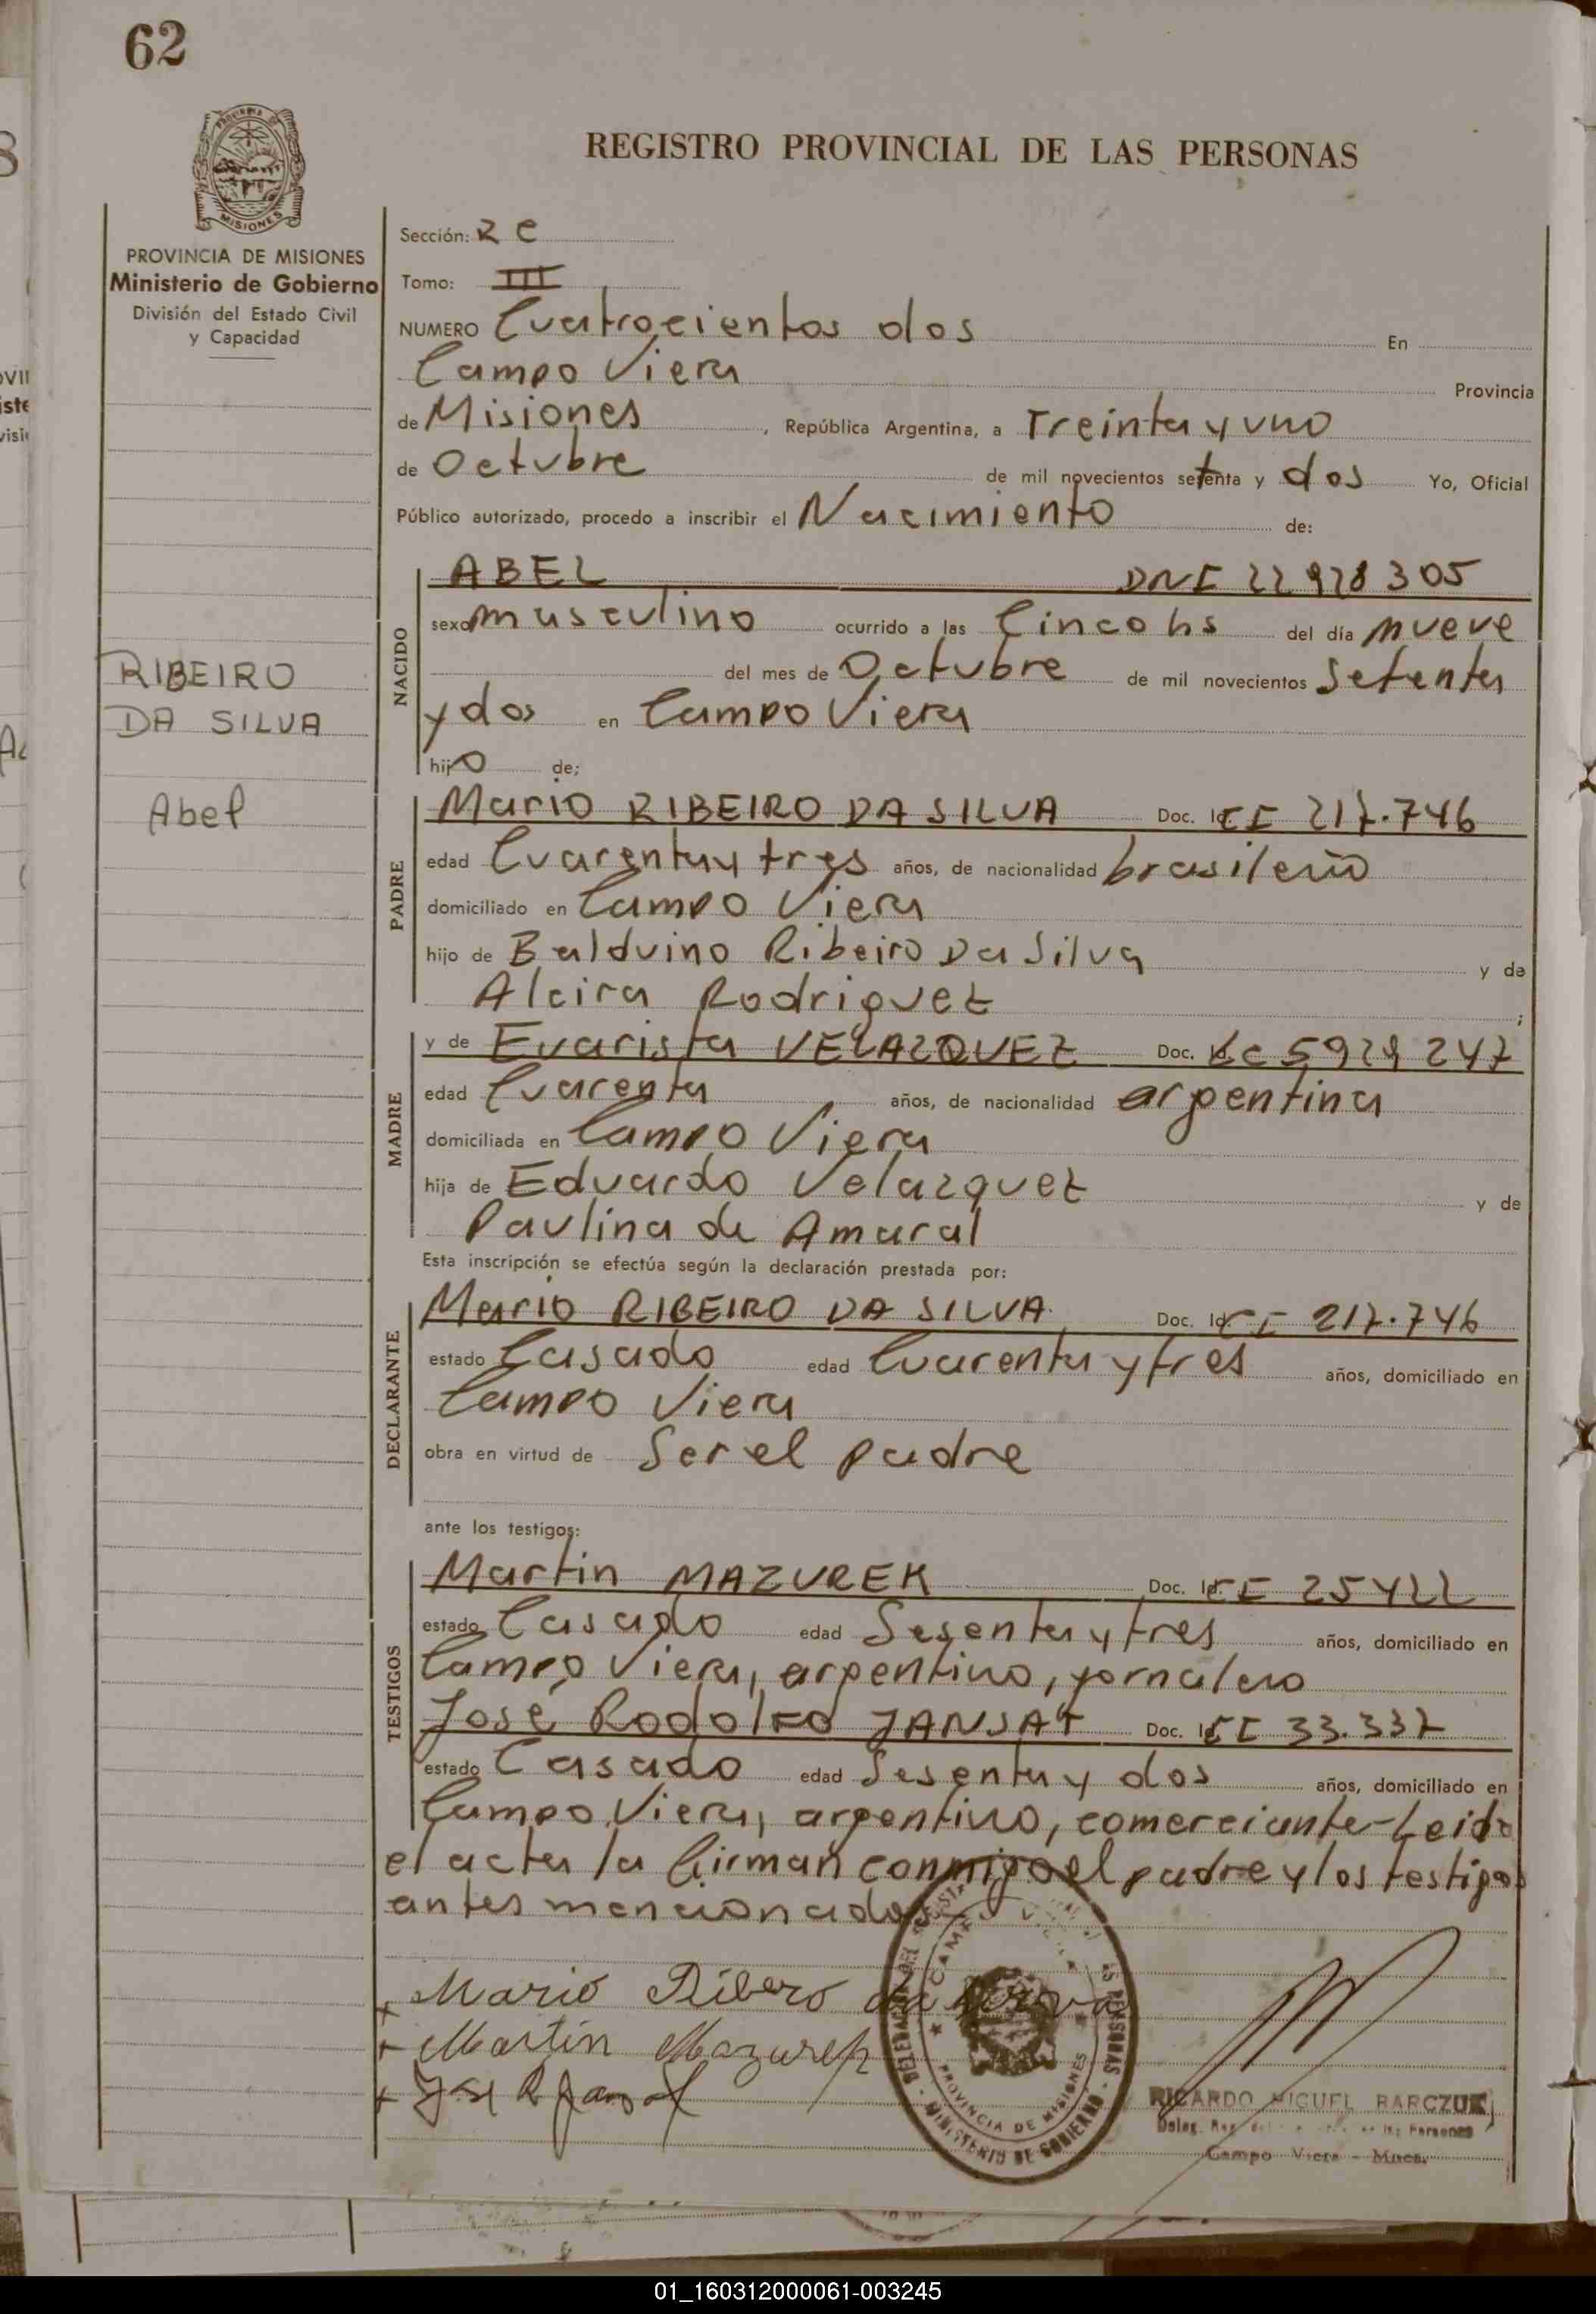 62
REGISTRO PROVINCIAL DE LAS PERSONAS
MISIONES
PROVINCIA DE MISIONES
Ministerio de Gobierno
División del Estado Civil
y Capacidad
RIBEIRO
DA SILVA
Abel
Sección: 2 C
Tomo: III
NUMERO Cuatrocientos dos En
Campo Viera Provincia
de Misiones, República Argentina, a Treinta y uno
de Octubre de mil novecientos setenta y dos Yo, Oficial
Público autorizado, procedo a inscribir el Nacimiento de:
NACIDO
ABEL DNI 22 928 305
sexo masculino ocurrido a las Cinco hs del día nueve
del mes de Octubre de mil novecientos Setenta
y dos en Campo Viera
hijo de;
PADRE
Mario RIBEIRO DA SILVA Doc. Id. CI 217.746
edad Cuarenta y tres años, de nacionalidad brasileño
domiciliado en Campo Viera
hijo de Balduino Ribeiro Da Silva y de
Alcira Rodriguez ;
MADRE
y de Evarista VELAZQUEZ Doc. LC 5929247
edad Cuarenta años, de nacionalidad argentina
domiciliada en Campo Viera
hija de Eduardo Velazquez y de
Paulina de Amaral
Esta inscripción se efectúa según la declaración prestada por:
DECLARANTE
Mario RIBEIRO DA SILVA Doc. Id. CI 217.746
estado Casado edad Cuarenta y tres años, domiciliado en
Campo Viera
obra en virtud de Ser el padre
ante los testigos:
TESTIGOS
Martin MAZUREK Doc. Id. CI 25422
estado Casado edad Sesenta y tres años, domiciliado en
Campo Viera, argentino, jornalero
José Rodolfo JANSAT Doc. Id. CI 33.337
estado Casado edad Sesenta y dos años, domiciliado en
Campo Viera, argentino, comerciante-Leida
el acta la firman conmigo el padre y los testigos
antes mencionados
Mario Ribero da
Martin Mazurek
PROVINCIA DE MISIONES
MINISTERIO DE GOBIERNO
RICARDO MIGUEL BARCZUK
Campo Viera - Mnes.
01_160312000061-003245